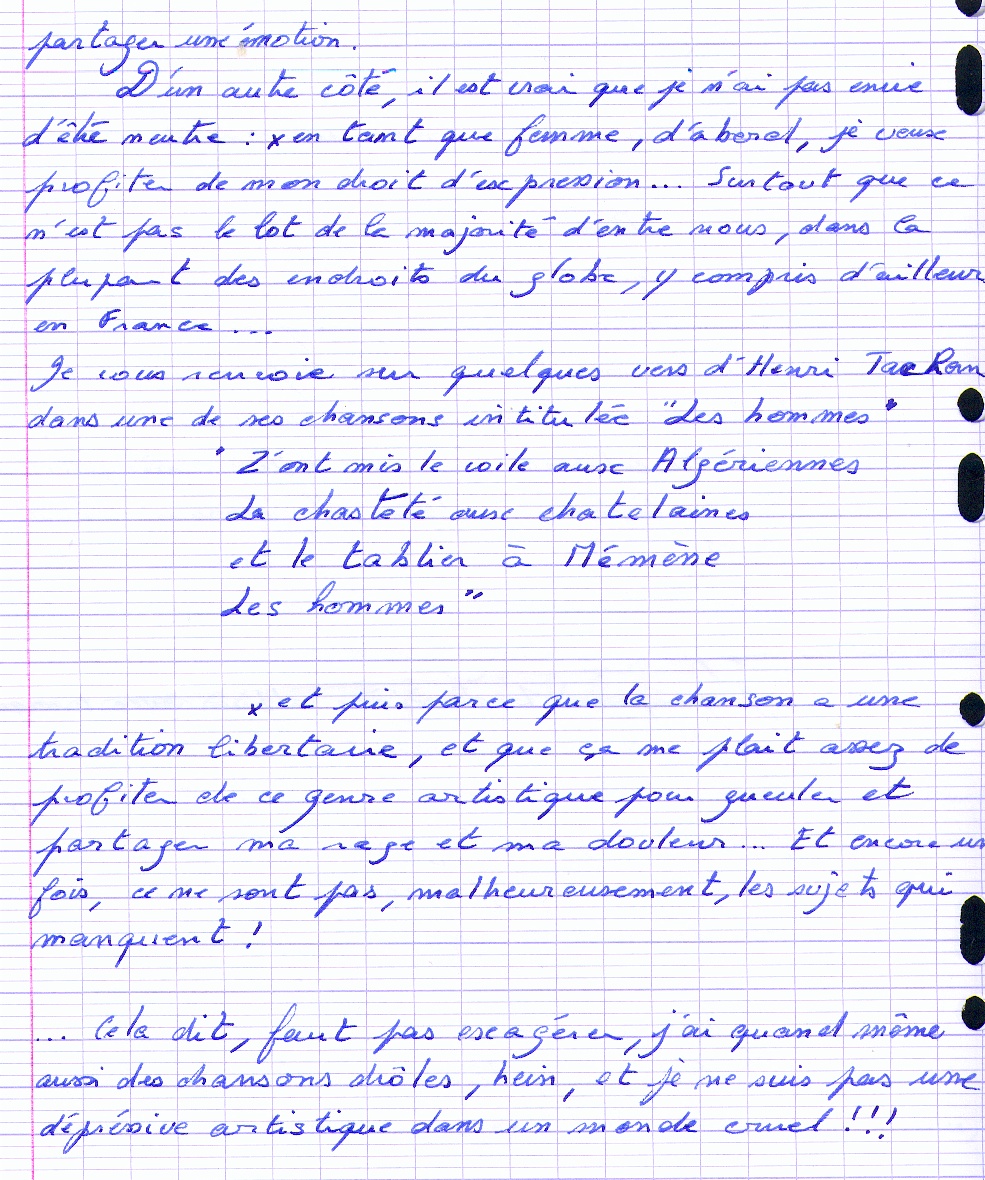 partager une émotion.
D'un autre côté, il est vrai que je n'ai pas envie
d'être neutre : x en tant que femme, d'abord, je veux
profiter de mon droit d'expression... Surtout que ce
n'est pas le lot de la majorité d'entre nous, dans la
plupart des endroits du globe, y compris d'ailleurs
en France ...
Je vous renvoie sur quelques vers d'Henri Tachan
dans une de ses chansons intitulée "Les hommes"
" Z'ont mis le voile aux Algériennes
La chasteté aux chatelaines
et le tablier à Mémène
Les hommes "
x et puis parce que la chanson a une
tradition libertaire, et que ça me plait assez de
profiter de ce genre artistique pour gueuler et
partager ma rage et ma douleur... Et encore un
fois, ce ne sont pas, malheureusement, les sujets qui
manquent !
... Cela dit, faut pas exagérer, j'ai quand même
aussi des chansons drôles, hein, et je ne suis pas une
dépréssive artistique dans un monde cruel !!!